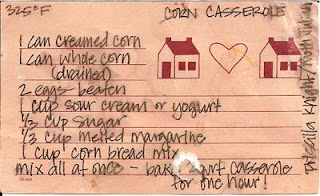 325°F
CORN CASSEROLE
1 can creamed corn
1 can whole corn
(drained)
2 eggs - beaten
1 cup sour cream or yogurt
1/3 cup sugar
1/3 cup melted margarine
1 cup corn bread mix
mix all at once - bake casserole
for one hour!
Priscilla Knight